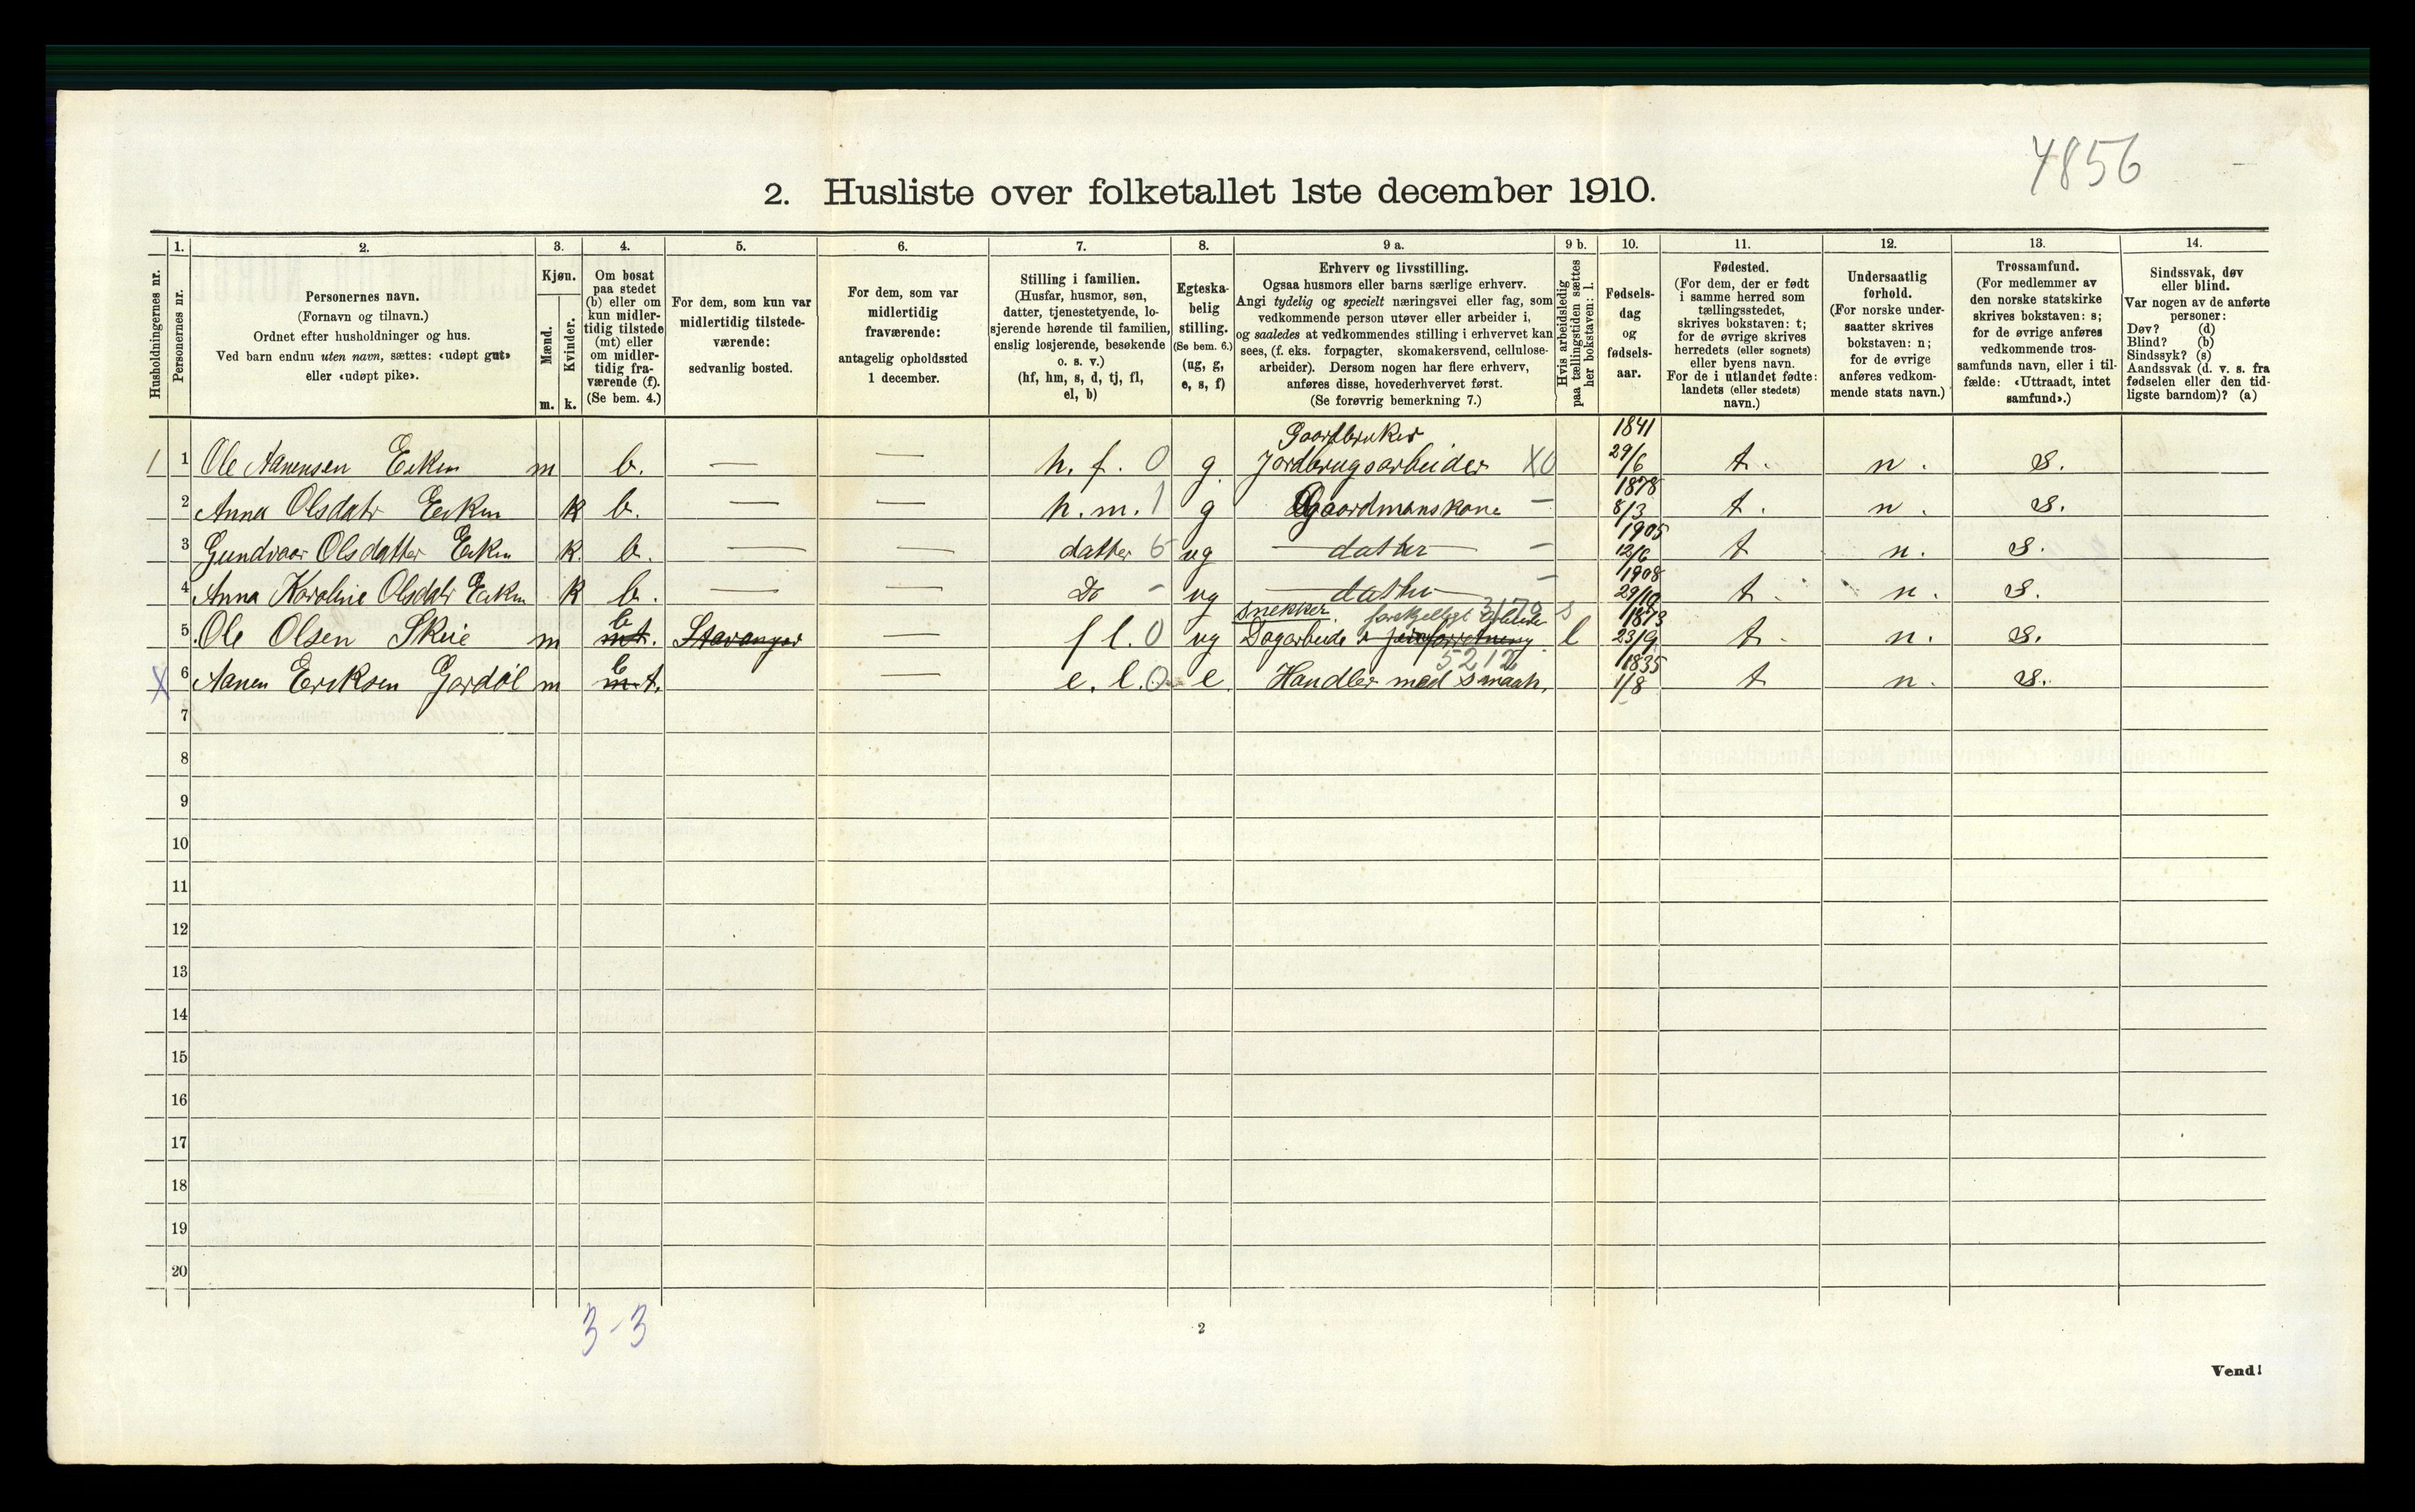 4856
2. Husliste over folketallet 1ste december 1910.
Husholdningernes nr.
1.
Personernes nr.
2.
Personernes navn.
(Fornavn og tilnavn.)
Ordnet efter husholdninger og hus.
Ved barn endnu uten navn, sættes: «udøpt gut»
eller «udøpt pike».
3.
Kjøn.
Mænd.
Kvinder.
m. k.
4.
Om bosat
paa stedet
(b) eller om
kun midler-
tidig tilstede
(mt) eller
om midler-
tidig fra-
værende (f).
(Se bem. 4.)
5.
For dem, som kun var
midlertidig tilstede-
værende:
sedvanlig bosted.
6.
For dem, som var
midlertidig
fraværende:
antagelig opholdssted
1 december.
7.
Stilling i familien.
(Husfar, husmor, søn,
datter, tjenestetyende, lo-
sjerende hørende til familien,
enslig losjerende, besøkende
o. s. v.)
(hf, hm, s, d, tj, fl,
el, b)
8.
Egteska-
belig
stilling.
(Se bem. 6.)
(ug, g,
e, s, f)
9 a.
Erhverv og livsstilling.
Ogsaa husmors eller barns særlige erhverv.
Angi tydelig og specielt næringsvei eller fag, som
vedkommende person utøver eller arbeider i,
og saaledes at vedkommendes stilling i erhvervet kan
sees, (f. eks. forpagter, skomakersvend, cellulose-
arbeider). Dersom nogen har flere erhverv,
anføres disse, hovederhvervet først.
(Se forøvrig bemerkning 7.)
9 b.
Hvis arbeidsledig
paa tællingstiden sættes
her bokstaven: l.
10.
Fødsels-
dag
og
fødsels-
aar.
11.
Fødested.
(For dem, der er født
i samme herred som
tællingsstedet,
skrives bokstaven: t;
for de øvrige skrives
herredets (eller sognets)
eller byens navn.
For de i utlandet fødte:
landets (eller stedets)
navn.)
12.
Undersaatlig
forhold.
(For norske under-
saatter skrives
bokstaven: n;
for de øvrige
anføres vedkom-
mende stats navn.)
13.
Trossamfund.
(For medlemmer av
den norske statskirke
skrives bokstaven: s;
for de øvrige anføres
vedkommende tros-
samfunds navn, eller i til-
fælde: «Uttraadt, intet
samfund».)
14.
Sindssvak, døv
eller blind.
Var nogen av de anførte
personer:
Døv? (d)
Blind? (b)
Sindssyk? (s)
Aandssvak (d. v. s. fra
fødselen eller den tid-
ligste barndom)? (a)
Gaardbruker 1841
1 1 Ole Aanensen Eiken m b. — — h. f. 0 g Jordbrugsarbeider X0 29/6 t. n. s.
1878
2 Anna Olsdatr Eeken k b. — — h. m. 1 g Gaardmanskone — 8/3 t. n. s.
1905
3 Gundvaar Olsdatter Eeken k. b. — — datter 6 ug — datter — — 12/6 t n. s.
1908
4 Anna Karoline Olsdatr Eeken k b. — — Do - ug — datter — — 29/10 t. n. s.
b Snekker forskjelligt arbeide 3170 s 1873
5 Ole Olsen Skeie m mt. Stavanger — f l. 0 ug Dagarbeide l 23/9 t. n. s.
b 5212 1835
X 6 Aanen Eriksen Gardøl m mt. — e. l. 0 e. Handler med smaat. 1/8 t n. s.
7
8
9
10
11
12
13
14
15
16
17
18
19
20
3-3
2
Vend!